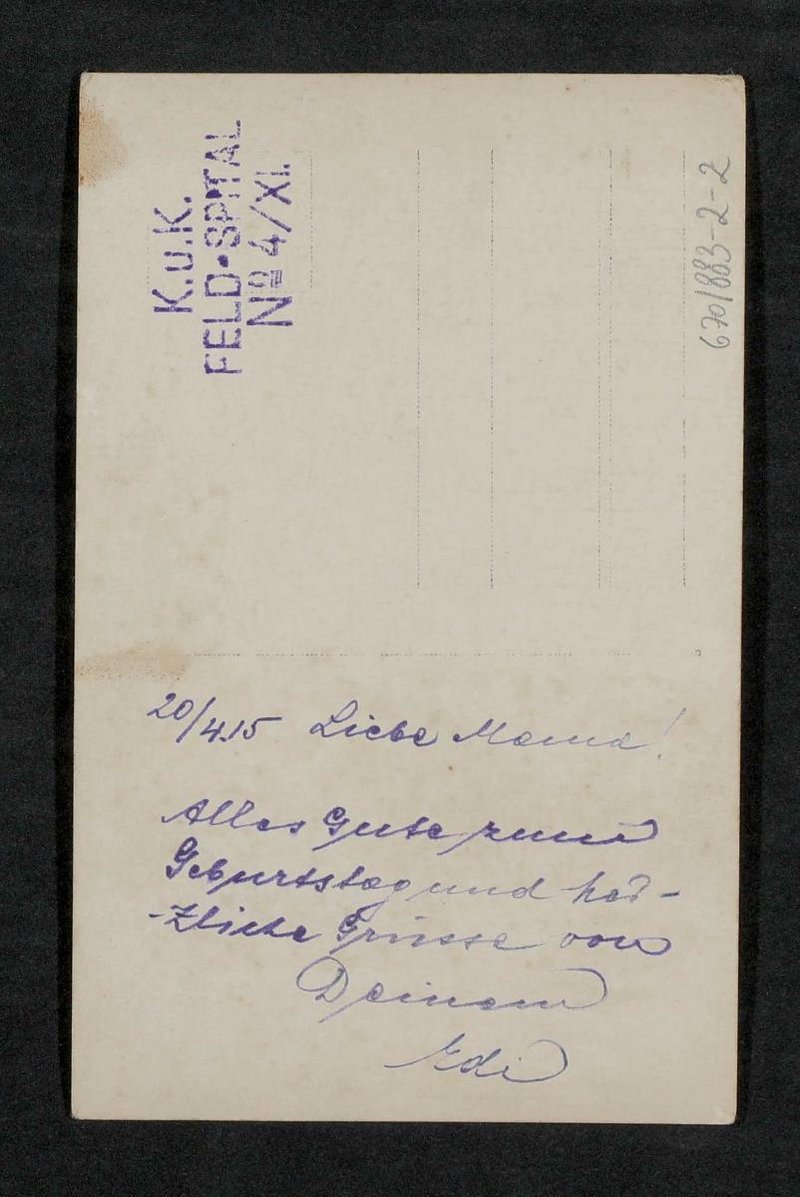 K.u.K.
FELD-SPITAL
Nº 4/XI.
670/883-2-2
20/4.15 Liebe Mama!
Alles Gute zum
Geburtstag und her-
-zliche Grüsse von
Deinem
Edi